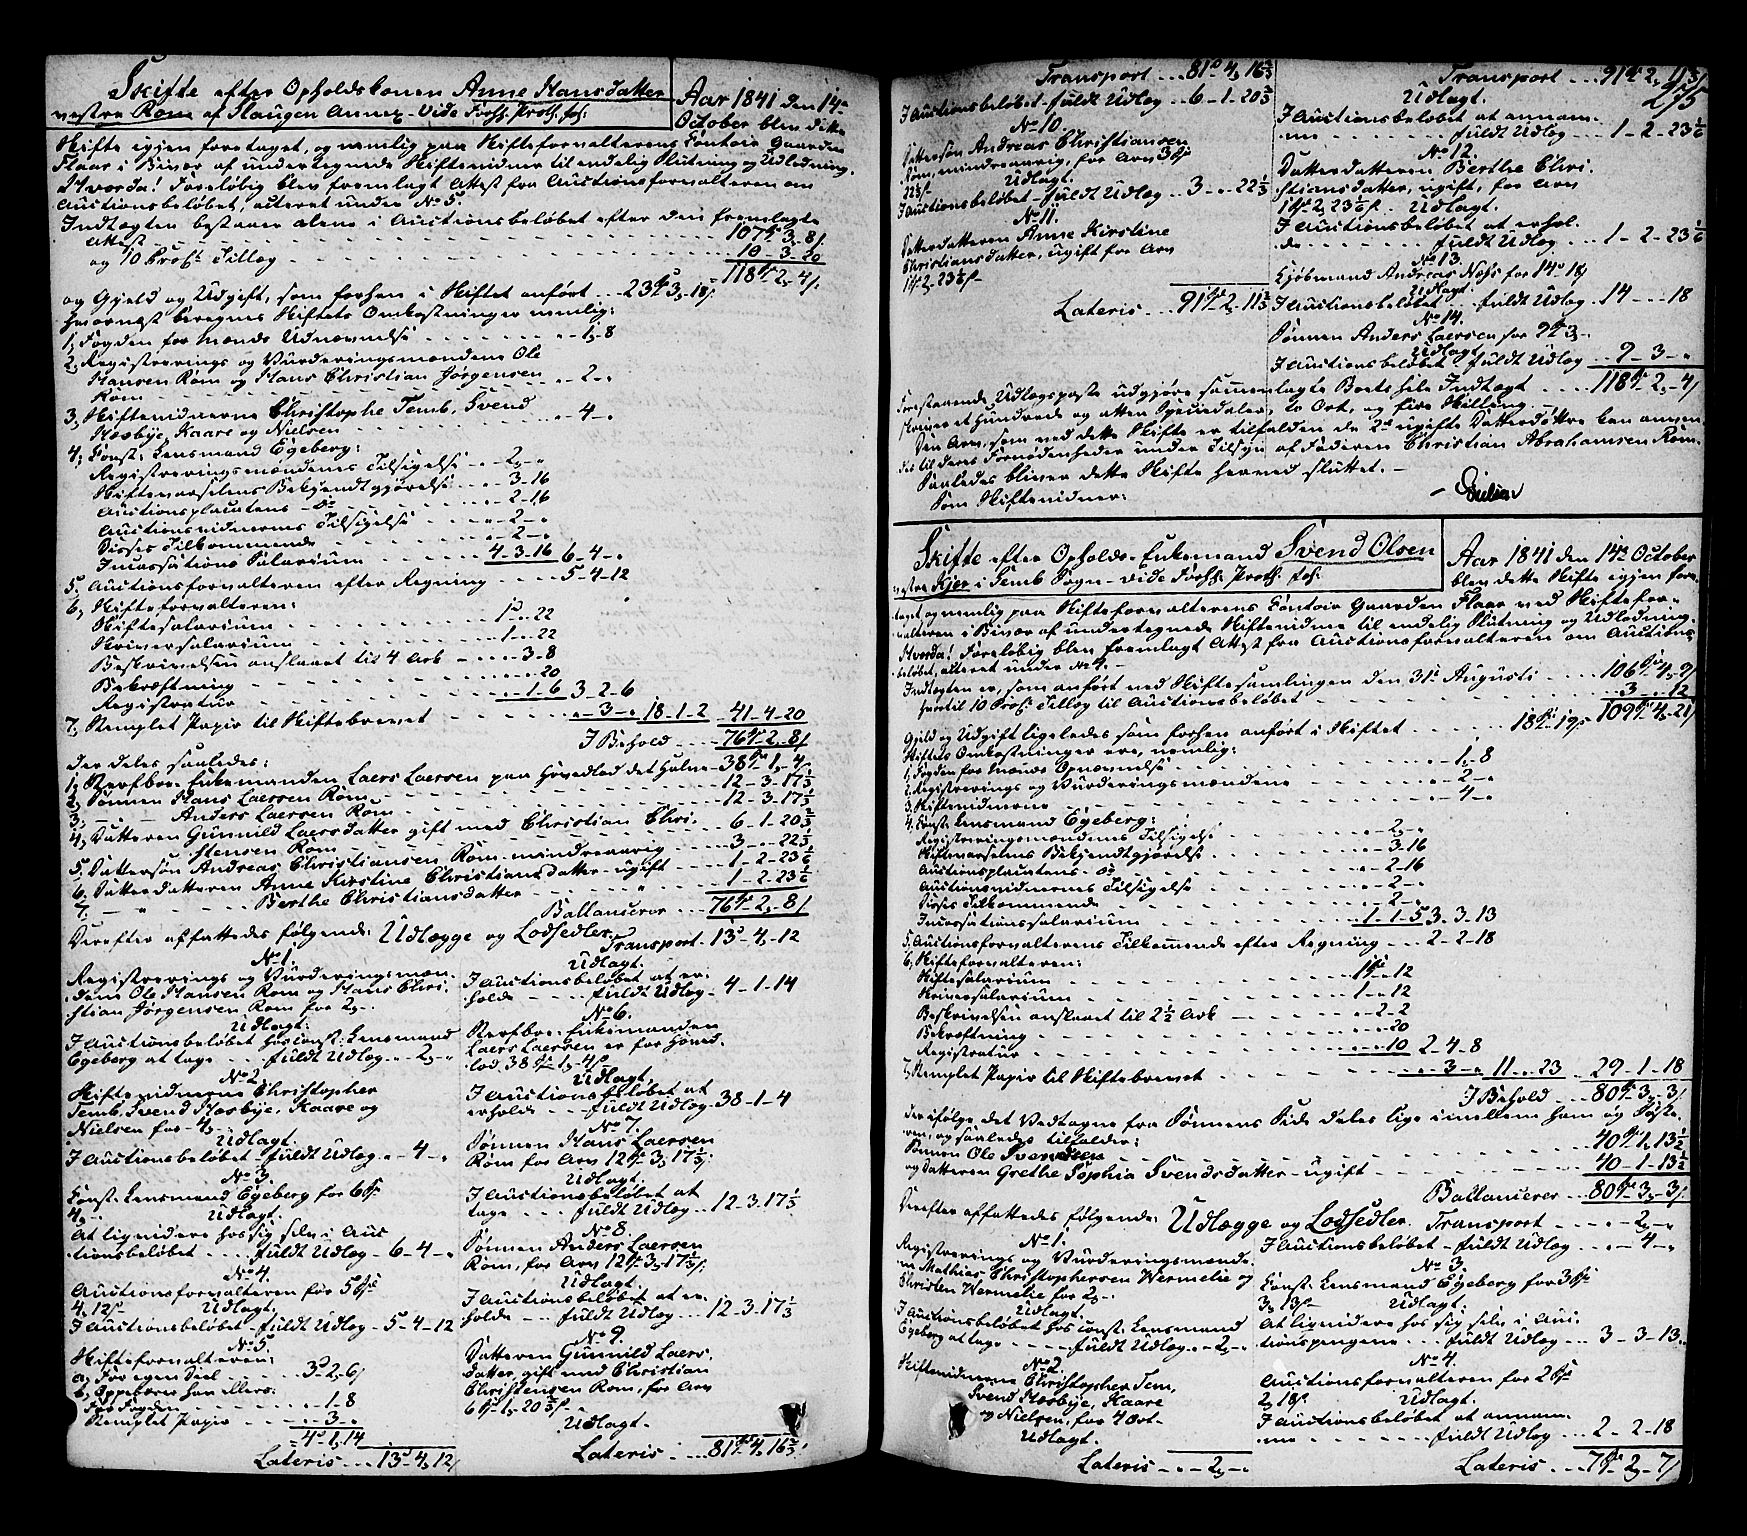 Skifte efter Opholdskonen Anne Hansdatter
vestre Rom af Haugen Annex - Vide Forh. Prot. fol:
Aar 1841 den 14de
October blev dette
Skifte igjen foretaget, og nemlig paa Skifteforvalterens Contoir Gaarden
Flaar i Bivær af undertegnede Skiftevidner til endelig Slutning og Udlodning.
Hvorda! Foreløbig blev fremlagt Attest fra Auctionsforvalteren om
Auctionsbeløbet, acteret under No 5.
Indtægten bestaaer alene i Auctionsbeløbet efter den fremlagte
Attest 107 3 8
og 10 Proct Tillæg 10 - 3 - 20
118 2 - 4
og Gjeld og Udgift, som forhen i Skiftet anført 23 3 - 18
hvornæst beregnes Skiftets Omkostninger nemlig:
1, Fogden for Mænds Udnævnelse 1 - 8
2, Registrerings og Vurderingsmændene Ole
Hansen Rom og Hans Christian Jørgensen
Rom - 2 -
3, Skiftevidnerne Christophe Temb, Svend
Mosbye, Kaare og Nielsen - 4 -
4, Const: Lensmand Egeberg:
Registreringsmændenes Tilsigelse - 2 -
Skiftevarselens Bekjendtgjørelse - 3 - 16
Auctionsplacatens Do - 2 - 16
Auctionsvidnernes Tilsigelse - 2 -
Disses Tilkommende - 2 -
Incassations Salarium 4 - 3 - 16 6 - 4 -
5, Auctionsforvalteren efter Regning 5 - 4 - 12
6, Skifteforvalteren:
Skiftesalarium 1 - 22
Skriversalarium 1 - 22
Beskrivelsen anslaaet til 4 Ark - 3 - 8
Bekræftning 20
Registratur 1 - 6 3 - 2 - 6
7, Stemplet Papir til Skiftebrevet - 3 - 18 - 1 - 2 41 - 4 - 20
I Behold 76 - 2 - 8
der deles saaledes:
1, Sterfboe-Enkemanden Laers Laersen paa Hovedlod det halve 38 1 - 4
2, Sønnen Hans Laersen Rom 12 - 3 - 17 1/3
3, — Anders Laersen Rom 12 - 3 - 17 1/3
4, Datteren Günnild Laersdatter gift med Christian Chri-
stensen Rom 6 - 1 - 20 2/3
5, Dattersøn Andreas Christiansen Rom - mindreaarig 3 - 22 1/3
6, Datterdatteren Anne Kirstine Christiansdatter - ugift 1 - 2 - 23 1/6
7, — Berthe Christiansdatter 1 - 2 - 23 1/6
Ballancerer 76 2 - 8
Derefter affattedes følgende: Udlægge og Lodsedler.
No 1.
Registrerings og Vurderingsmæn-
dene Ole Hansen Rom og Hans Chri-
stian Jørgensen Rom for 2 -
Udlagt:
I Auctionsbeløbet hos Const: Lensmand
Egeberg at tage fuldt Udlæg - 2 -
No 2.
Skiftevidnerne Christopher
Temb, Svend Mosbye, Kaare og
Nielsen for - 4 -
Udlagt.
I Auctionsbeløbet fuldt Udlæg - 4 -
No 3.
Const. Lensmand Egeberg for 6
4 -
Udlagt.
At liqvidere hos sig selv i Auc
tionsbeløbet fuldt Udlæg - 6 - 4 -
No 4.
Auctionsforvalteren for 5
4, 12
Udlagt.
I Auctionsbeløbet fuldt Udlæg - 5 - 4 - 12
No 5.
Skifteforvalteren:
a, For egen Deel 3 - 2 - 6
b, Oppebærer han ellers.
For Fogden - 1 - 8
Stemplet Papir - 3 -
4 - 1 - 14
Lateris 13 4, 12
Transport - 13 - 4 - 12
Udlagt.
I Auctionsbeløbet at er-
holde fuldt Udlæg - 4 - 1 - 14
No 6.
Sterfboe-Enkemanden
Laers Laersen er for Hoved-
lod 38 1 - 4
Udlagt.
I Auctionsbeløbet at
erholde fuldt Udlæg - 38 - 1 - 4
No 7.
Sønnen Hans Laersen
Rom for Arv 12 3, 17 1/3
Udlagt.
I Auctionsbeløbet at
tage fuldt Udlæg - 12 - 3 - 17 1/3
No 8.
Sønnen Anders Laersen
Rom, for Arv 12 3, 17 1/3
Udlagt.
I Auctionsbeløbet at er-
holde fuldt Udlæg - 12 - 3 - 17 1/3
No 9.
Datteren Günnild Laers-
datter, gift med Christian
Christensen Rom, for Arv
6 - 1 - 20 2/3
Udlagt.
Lateris 81 4, 16 2/3
Transport 81 4, 16 2/3
I Auctionsbeløbet fuldt Udlæg - 6 - 1 - 20 2/3
No 10.
Dattersøn Andreas Christiansen
Rom, mindreaarig, for Arv 3
22 1/3
Udlagt.
I Auctionsbeløbet - fuldt Udlæg - 3 - 22 1/3
No 11.
Datterdatteren Anne Kirstine
Christiansdatter, ugift for Arv
1 2, 23 1/6
Lateris 91 2, 11 2/3
275
Transport 91 2, 11 2/3
Udlagt.
I Auctionsbeløbet at annam-
me fuldt Udlæg - 1 - 2 - 23 1/6
No 12.
Datterdatteren Berthe Chri-
stiansdatter, ugift, for Arv
1 2, 23 1/6
Udlagt.
I Auctionsbeløbet at erhol-
de fuldt Udlæg - 1 - 2 - 23 1/6
No 13.
Kjøbmand Andreas Nøhs for 14 18
Udlagt.
I Auctionsbeløbet fuldt Udlæg 14 - 18
No 14.
Sønnen Anders Laersen for 9 3 -
Udlagt.
I Auctionsbeløbet fuldt Udlæg 9 - 3 -
118 2, 4
Foranstaaende Udlægsposte udgjøre sammenlagte Boets hele Indtægt
skriver et Hundrede og atten Speciedaler, to Ort, og fire Skilling. -
Den Arv, som ved dette Skifte er tilfalden de 2de ugifte Datterdøttre kan anven-
des til deres Fornødenheder under Tilsyn af Faderen Christian Abrahamsen Rom.
Saaledes bliver dette Skifte herved sluttet. -
Som Skiftevidner:
Skifte efter Opholds-Enkemand Svend Olsen
vestre Kjær i Temb Sogn - vide Forh. Prot. fol:
Aar 1841 den 14de October
blev dette Skifte igjen fore-
taget og nemlig paa Skifteforvalterens Contoir Gaarden Flaar ved Skiftefor-
valteren i Bivær af undertegnede Skiftevidne til endelig Slutning og Udlodning.
Hvorda! Foreløbig blev fremlagt Attest fra Auctionsforvalteren om Auctions
beløbet, acteret under No 4. -
Indtægten er, som anført ved Skiftesamlingen den 31te Augusti 106 4, 9
hertil 10 Proct Tillæg til Auctionsbeløbet 3 - 12
109 4, 21
Gjeld og Udgift ligeledes som forhen anført i Skiftet 18 - 19
Skiftets Omkostninger ere, nemlig:
1, Fogden for Mænds Opnævnelse - 1, 8
2, Registrerings og Vurderingsmændene - 2 -
3, Skiftevidnerne - 4 -
4, Const. Lensmand Egeberg:
Registreringsmændenes Tilsigelse - 2 -
Skiftevarselens Bekjendtgjørelse - 3, 16
Auctionsplacatens Do - 2 - 16
Auctionsvidnernes Tilsigelse - 2 -
Disses Tilkommende - 2 -
Incassationssalarium 1 - 1 - 5 3 - 3 - 13
5, Auctionsforvalterens Tilkommende efter Regning 2 - 2 - 18
6, Skifteforvalteren:
Skiftesalarium 1 - 12
Skriversalarium 1 - 12
Beskrivelsen anslaaet til 2 1/2 Ark 2 - 2
Bekræftning 20
Registratur 10 2 - 4 - 8
7, Stemplet Papir til Skiftebrevet - 3 - 11 - 23 29 - 1 - 18
I Behold 80 3, 3
der ifølge det Vedtagne fra Sønnens Side deles lige imellem ham og Søste-
ren, og saaledes tilfalder:
Sønnen Ole Svendsen 40 1, 13 1/2
og Datteren Grethe Sophia Svendsdatter - ugift 40 - 1 - 13 1/2
Ballancerer 80 3, 3
Derefter affattedes følgende: Udlægge og Lodsedler.
No 1.
Registrerings og Vurderingsmænde-
ne Mathias Christophersen Wermelie og
Christen Wermelie for 2 -
Udlagt.
I Auctionsbeløbet hos Const. Lensmand
Egeberg at tage fuldt Udlæg - 2 -
No 2.
Skiftevidnerne Christopher Tem,
Svend Mosbye, Kaare
og Nielsen, for 4 Ort -
Udlagt.
Lateris - 2 -
Transport - 2 -
I Auctionsbeløbet - fuldt Udlæg - 4 -
No 3.
Const. Lensmand Egeberg for 3
3, 13
Udlagt:
At liqvidere hos sig selv i Auc-
tionspengene fuldt Udlæg 3 - 3 - 13
No 4.
Auctionsforvalteren for 2
2, 18
Udlagt.
I Auctionsbeløbet at annam-
me fuldt Udlæg 2 - 2 - 18
Lateris 7 2 - 7